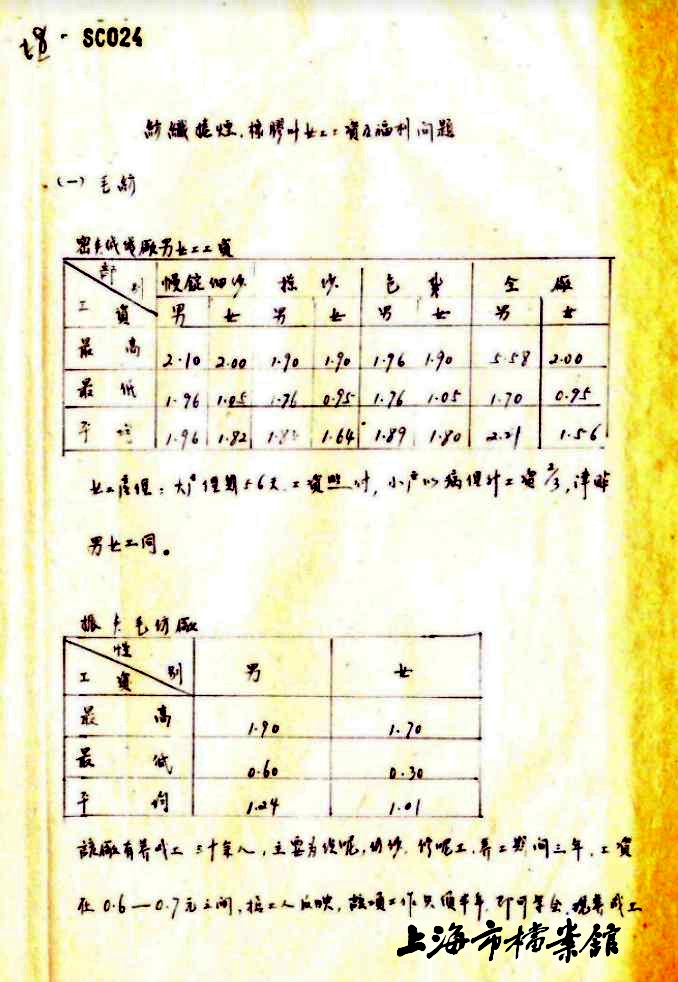 SC024
紡織捲煙、橡膠叶女工工資及福利问題
(一) 毛紡
廠男女工工資
部别 慢錠细沙 捻沙 包装 全廠
工資 男 女 男 女 男 女 男 女
最高 2.10 2.00 1.90 1.90 1.96 1.90 5.58 2.00
最低 1.96 1.05 1.76 0.95 1.76 1.05 1.70 0.95
平均 1.96 1.82 1.64 1.89 1.80 2.21 1.56
女工產假：大產假期56天工資照付，小產以病假计工資2/3，津貼
男女工同。
振 毛紡廠
性别
工資 男 女
最高 1.90 1.70
最低 0.60 0.30
平均 1.24 1.01
該廠有养成工三十余人，主要为 呢，纺沙，修呢工，养工期间三年，工資
在0.6—0.7元之间，据工人反映，該項工作只須半年，即可学会，现养成工
上海市檔案館